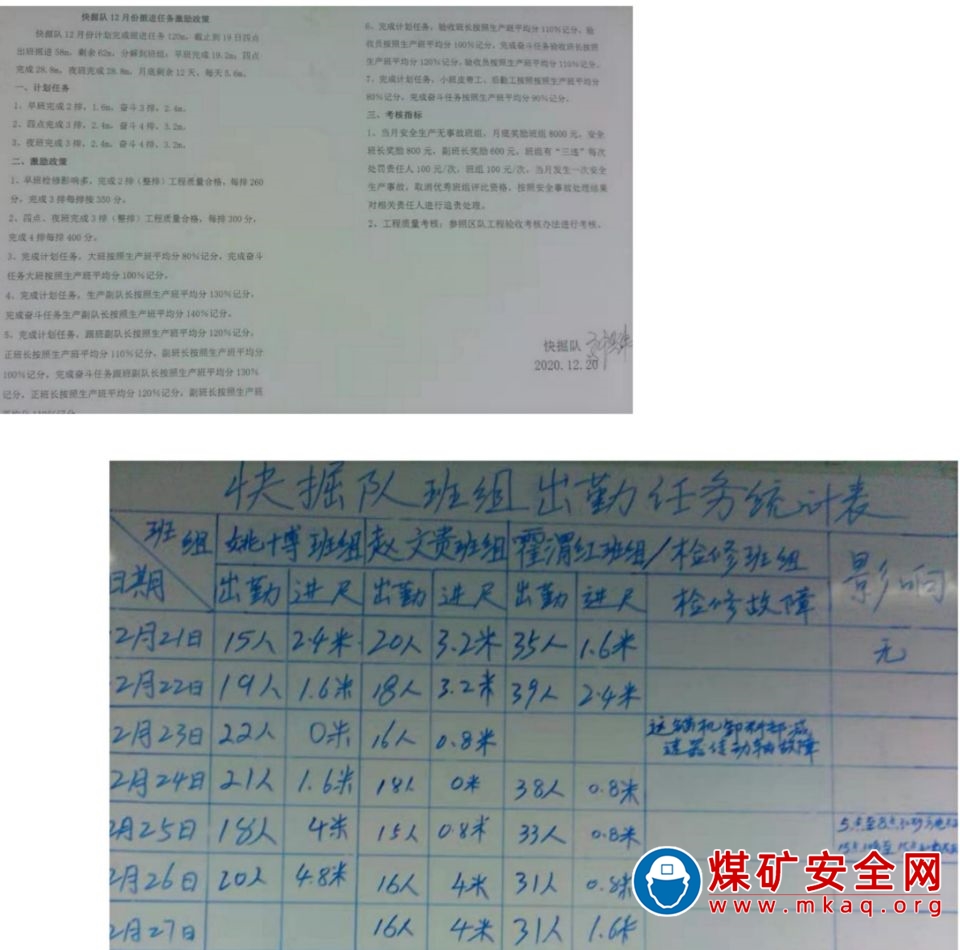 快掘队12月份掘进任务激励政策
快掘队12月份计划完成掘进任务120m，截止到19日四点
出班掘进58m，剩余62m，分解到班组：早班完成19.2m；四点
完成28.8m，夜班完成28.8m，月底剩余12天，每天5.6m。
一、计划任务
1、早班完成2排，1.6m，奋斗3排，2.4m。
2、四点完成3排，2.4m，奋斗4排，3.2m。
3、夜班完成3排，2.4m，奋斗4排，3.2m。
二、激励政策
1、早班检修影响多，完成2排（整排）工程质量合格，每排260
分，完成3排每排按350分。
2、四点、夜班完成3排（整排）工程质量合格，每排300分，
完成4排每排400分。
3、完成计划任务，大班按照生产班平均分80%记分，完成奋斗
任务大班按照生产班平均分100%记分。
4、完成计划任务，生产副队长按照生产班平均分130%记分，
完成奋斗任务生产副队长按照生产班平均分140%记分。
5、完成计划任务，跟班副队长按照生产班平均分120%记分，
正班长按照生产班平均分110%记分，副班长按照生产班平均分
100%记分，完成奋斗任务跟班副队长按照生产班平均分130%
记分，正班长按照生产班平均分120%记分，副班长按照生产班
平均分110%记分
6、完成计划任务，验收班长按照生产班平均分110%记分，验
收员按照生产班平均分100%记分，完成奋斗任务验收班长按照
生产班平均分120%记分，验收员按照生产班平均分110%记分。
7、完成计划任务，小班皮带工、后勤工按照按照生产班平均分
80%记分，完成奋斗任务按照生产班平均分90%记分。
三、考核指标
1、当月安全生产无事故班组，月底奖励班组8000元，安全
班长奖励800元，副班长奖励600元，班组有“三违”每次
处罚责任人100元/次，班组100元/次，当月发生一次安全
生产事故，取消优秀班组评比资格，按照安全事故处理结果
对相关责任人进行追责处理。
2、工程质量考核：参照区队工程验收考核办法进行考核。
快掘队
2020.12.20
快掘队班组出勤任务统计表
班组 姚博班组 赵文贵班组 霍渭红班组/检修班组 影响
日期 出勤 进尺 出勤 进尺 出勤 进尺 检修故障
2月21日 15人 2.4米 20人 3.2米 35人 1.6米 无
2月22日 19人 1.6米 18人 3.2米 39人 2.4米
2月23日 22人 0米 16人 0.8米 运输机卸料部减
速器传动轴故障
2月24日 21人 1.6米 18人 0米 38人 0.8米
2月25日 18人 4米 15人 0.8米 33人 0.8米
2月26日 20人 4.8米 16人 4米 31人 0.8米
2月27日 16人 4米 31人 1.6米
煤矿安全网
www.mkaq.org